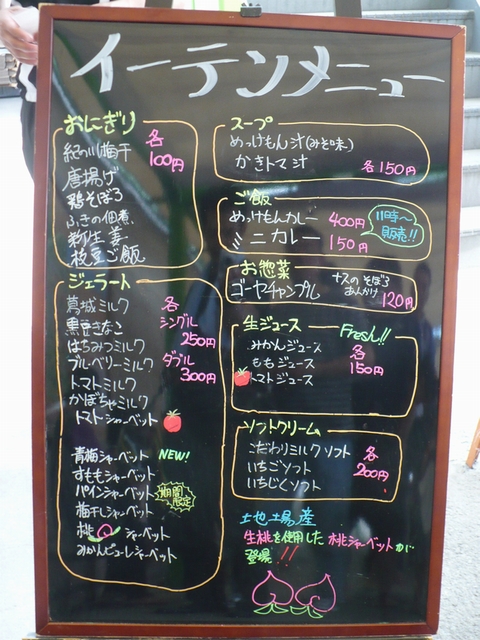 イーテンメニュー
おにぎり
各
100円
紀の川梅干
唐揚げ
鶏そぼろ
ふきの佃煮
新生姜
枝豆ご飯
ジェラート
葛城ミルク
各
黒豆きなこ
シングル
250円
はちみつミルク
ブルーベリーミルク
ダブル
300円
トマトミルク
かぼちゃミルク
トマトシャーベット
青梅シャーベット NEW!
すももシャーベット
パインシャーベット
期間限定
梅干しシャーベット
桃シャーベット
みかんピューレシャーベット
スープ
めっけもん汁(みそ味)
かきトマ汁
各150円
ご飯
めっけもんカレー 400円
11時〜
販売!!
ミニカレー 150円
お惣菜
ゴーヤチャンプル
ナスのそぼろ
あんかけ
120円
生ジュース
Fresh!!
みかんジュース
ももジュース
トマトジュース
各
150円
ソフトクリーム
こだわりミルクソフト
いちごソフト
いちじくソフト
各
200円
土地土場産
生桃を使用した桃シャーベットが
登場!!